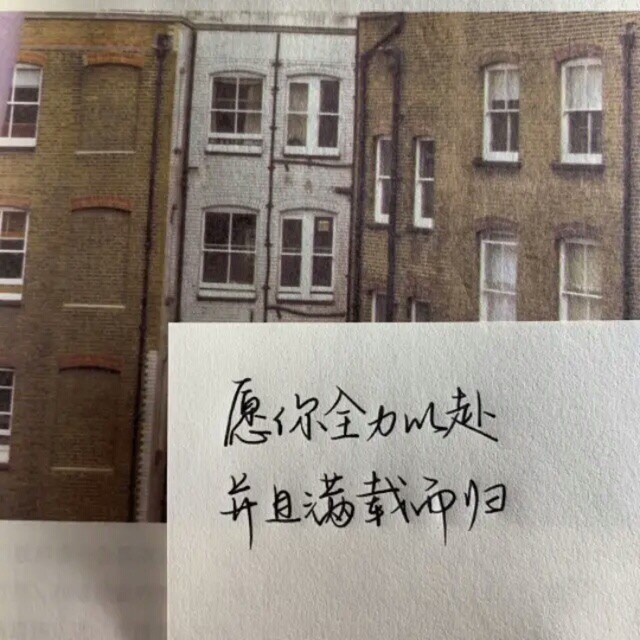 愿你全力以赴
并且满载而归